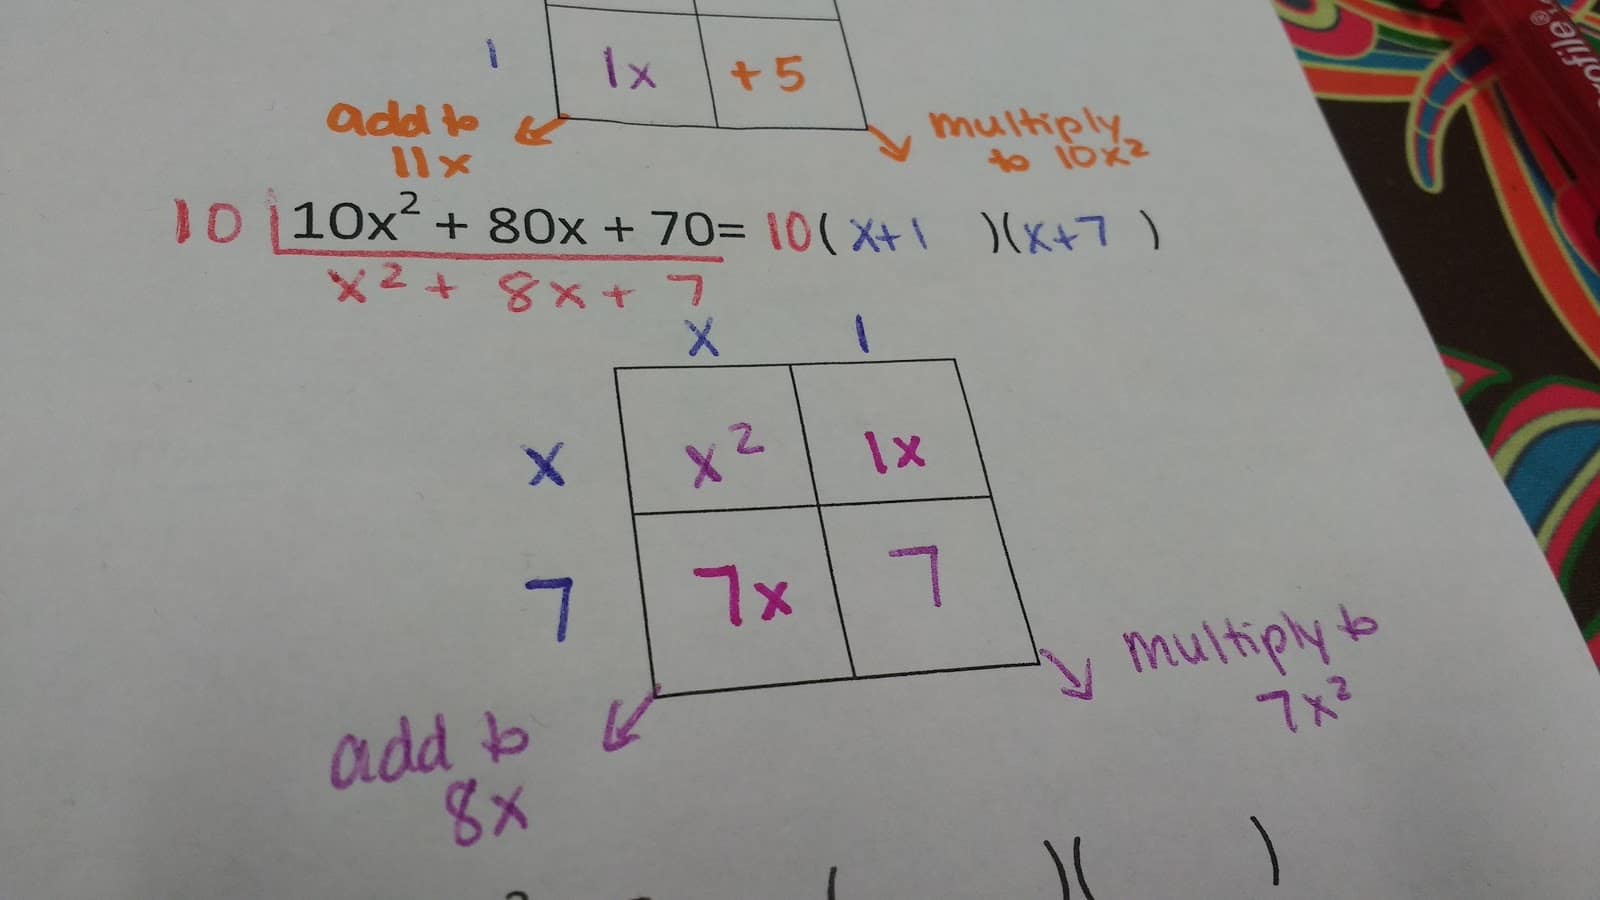 1 1x +5
add to
11x
multiply
to 10x²
10 10x² + 80x + 70= 10( x+1 )(x+7 )
x² + 8x + 7
x 1
x x² 1x
7 7x 7
multiply to
7x²
add to
8x
( )( )